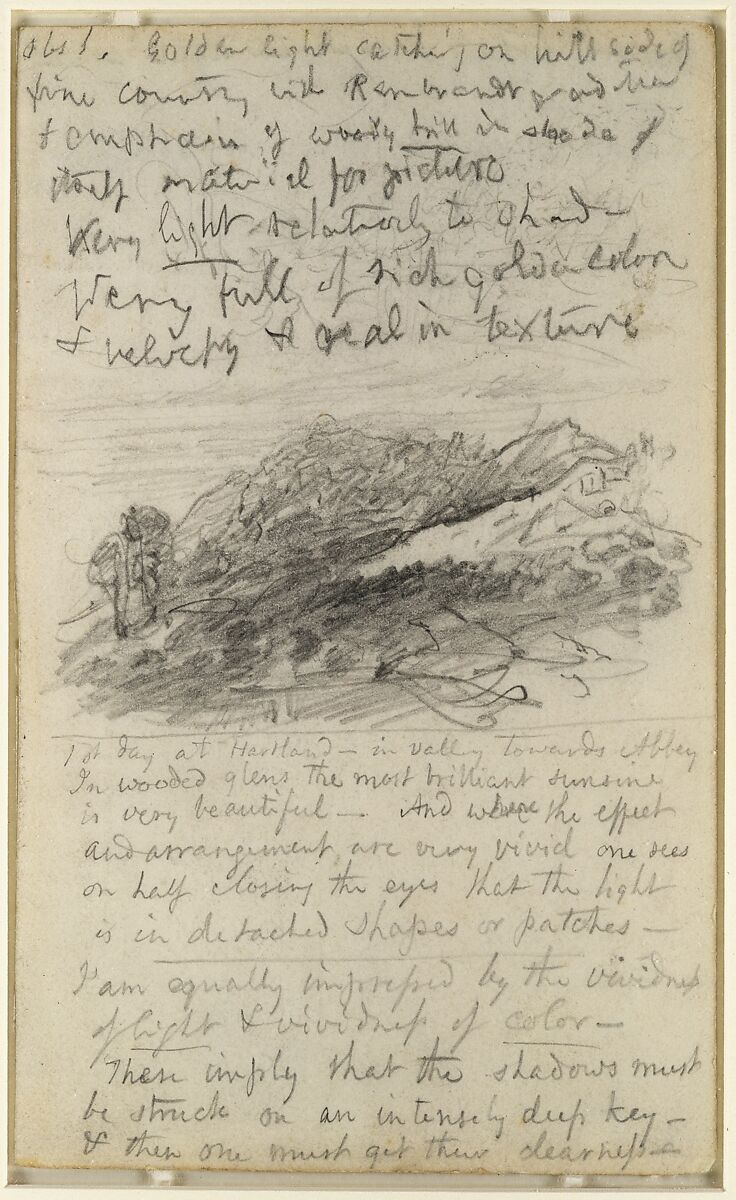 obs 1. Golden light catching on hill side of
fine country with Rembrandt
& emphasis of woody hill in shade
itself material for picture
Very light relatively to shade
Very full of rich golden color
& velvety & real in texture
1st day at Hartland — in valley towards Abbey
In wooded glens the most brilliant sunsine
is very beautiful —. And where the effect
and arrangement are very vivid one sees
on half closing the eyes that the light
is in detached shapes or patches —
I am equally impressed by the vividness
of light & vividness of color —
These imply that the shadows must
be struck on an intensely deep key —
& then one must get their clearness —